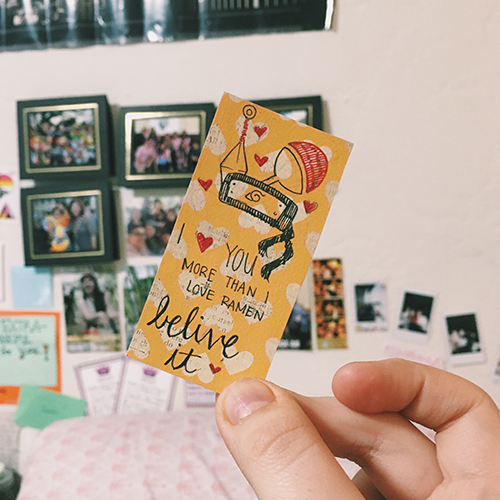 I ❤ YOU
MORE THAN I
LOVE RAMEN
belive
it